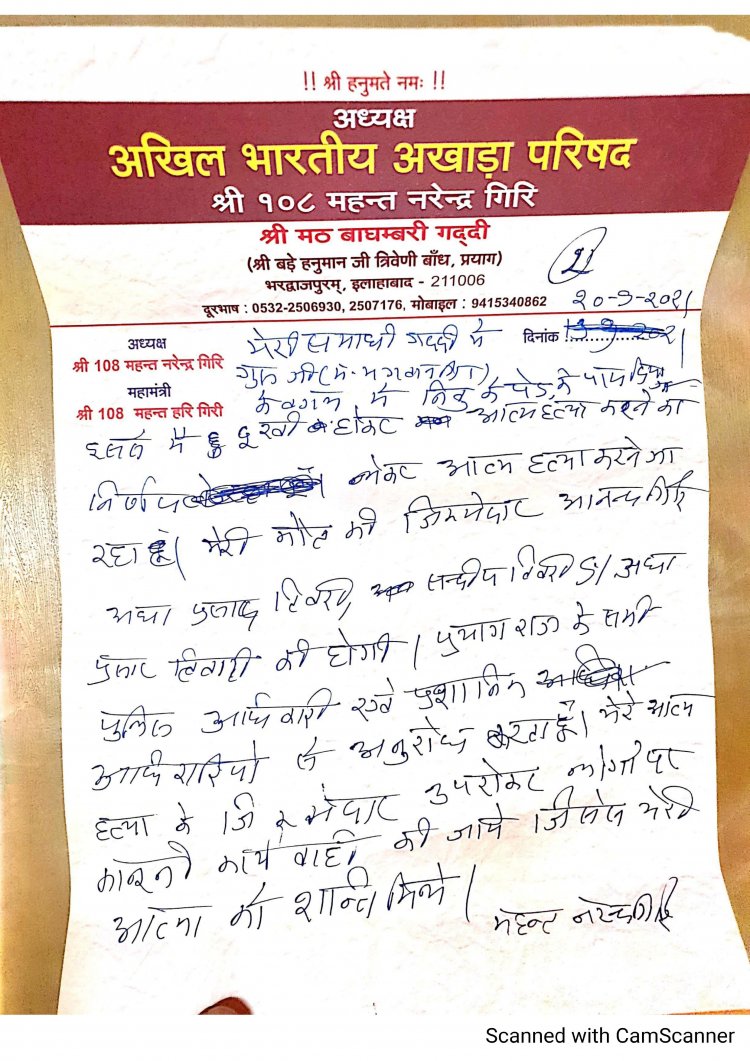 !! श्री हनुमते नमः !!
अध्यक्ष
अखिल भारतीय अखाड़ा परिषद
श्री १०८ महन्त नरेन्द्र गिरि
श्री मठ बाघम्बरी गद्दी
(श्री बड़े हनुमान जी त्रिवेणी बाँध, प्रयाग)
भरद्वाजपुरम्, इलाहाबाद - 211006
दूरभाष : 0532-2506930, 2507176, मोबाइल : 9415340862
२०-9-२०२१
अध्यक्ष
श्री 108 महन्त नरेन्द्र गिरि
महामंत्री
श्री 108 महन्त हरि गिरी
दिनांक :
मेरी समाधी गद्दी में
गुरु जी
के बगल में के पेड़ के पास दिया
में दुखी होकर आत्म हत्या करने का
निर्णय लेकर आत्म हत्या करने जा
रहा हूँ। मेरी मौत की जिम्मेदार आनन्द गिरि
आद्या प्रसाद तिवारी, सन्दीप तिवारी आद्या
प्रसाद तिवारी की होगी। प्रयाग राज के सभी
पुलिस
से अनुरोध करता हूँ। मेरे आत्म
हत्या के उपरोक्त लोगो पर
कानूनी कार्यवाही की जाये जिससे मेरी
आत्मा को शान्ति मिले।
महन्त नरेन्द्र गिरि
Scanned with CamScanner